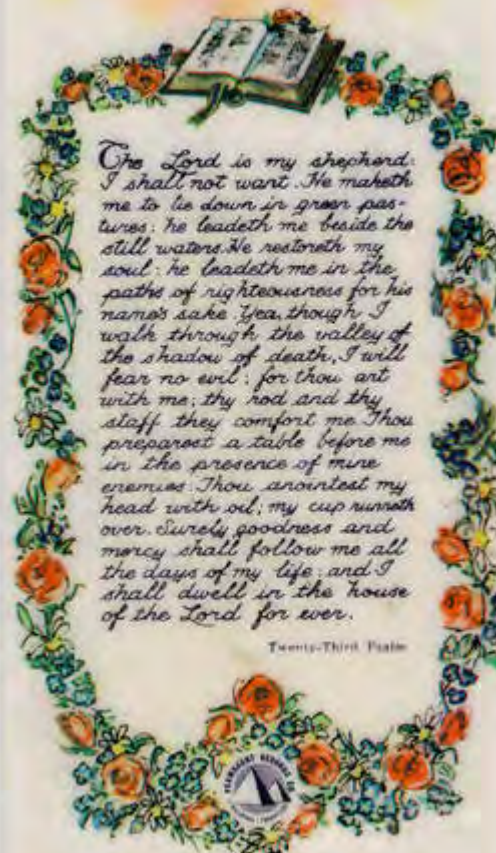 The Lord is my shepherd:
I shall not want. He maketh
me to lie down in green pas-
tures: he leadeth me beside the
still waters. He restoreth my
soul: he leadeth me in the
paths of righteousness for his
name's sake. Yea, though I
walk through the valley of
the shadow of death, I will
fear no evil; for thou art
with me; thy rod and thy
staff they comfort me. Thou
preparest a table before me
in the presence of mine
enemies. Thou anointest my
head with oil; my cup runneth
over. Surely goodness and
mercy shall follow me all
the days of my life; and I
shall dwell in the house
of the Lord for ever.
Twenty-Third Psalm